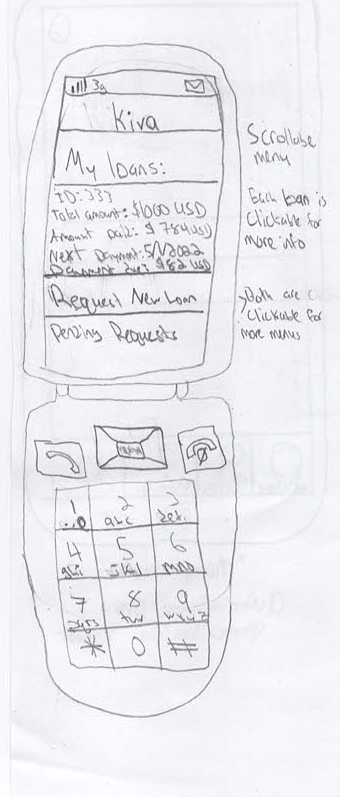 3g
Kiva
My loans:
ID: 333
Total amount: $1000 USD
Amount paid: $784 USD
Next Payment: 5/1/2022
Payment due: $82 USD
Request New Loan
Pending Requests
Scrollabe
menu
Each loan is
Clickable for
more info
Both are
Clickable for
more menus
1
2
abc
3
4
5
6
mno
7
8
tuv
9
wxyz
*
0
#